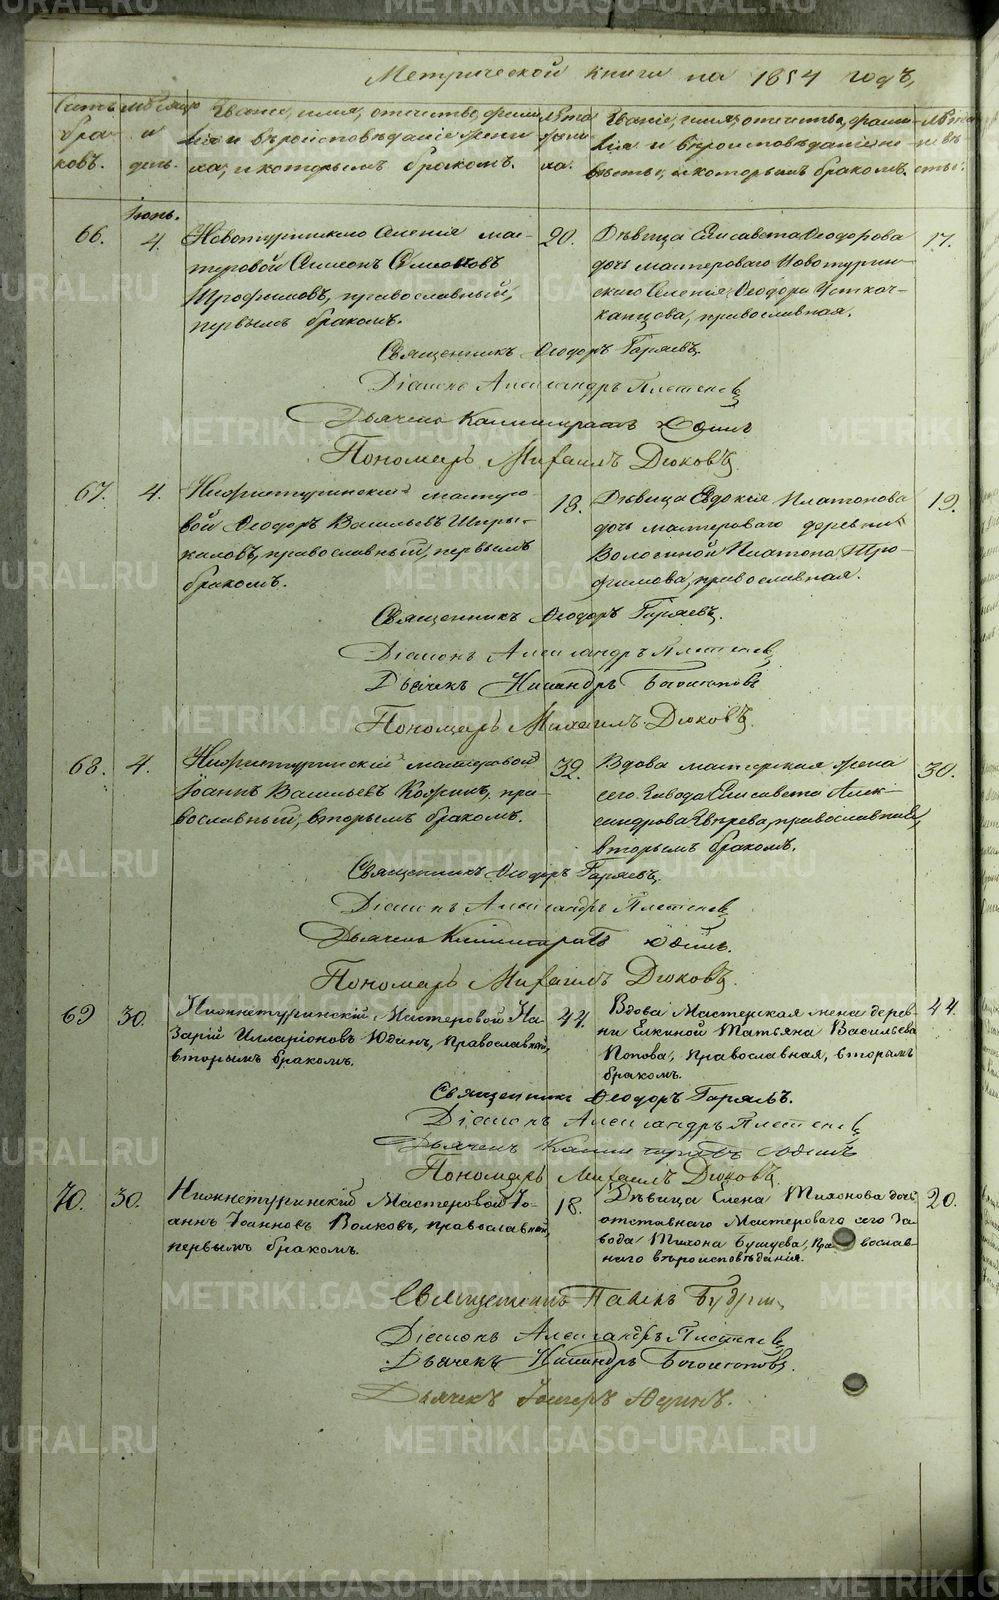 Метрической книги на 1854 годъ,
Счетъ браковъ.
мѣсяцъ и день.
Званіе, имя, отечество, фамилія и вѣроисповѣданіе жениха, и которымъ бракомъ.
Лѣта жениха.
Званіе, имя, отечество, фамилія и вѣроисповѣданіе невѣсты, и которымъ бракомъ.
Лѣта невѣсты.
Іюнь.
66. 4. Новотуринскаго Селенія ма-
теровой Симеонъ Симеоновъ
Трофимовъ, православный,
первымъ бракомъ.
20.
Дѣвица Елисавета Ѳеодорова
дочь мастероваго Новотурин-
скаго Селенія Ѳеодора
православная.
17.
Священникъ Ѳеодоръ Гаряевъ.
Діаконъ Александръ Плетеневъ
Дьячекъ Каллистратъ Юдинъ
Пономарь Михаилъ Дюковъ
67. 4. Нижнетуринскій мастеро-
вой Ѳеодоръ Васильевъ Ширы-
каловъ, православный, первымъ
бракомъ.
18.
Дѣвица Евдокія Платонова
дочь мастероваго деревни
Вологиной Платона Тро-
фимова, православная.
19.
Священникъ Ѳеодоръ Гаряевъ.
Діаконъ Александръ Плетеневъ
Дьячекъ Никандръ Богословъ
Пономарь Михаилъ Дюковъ.
68. 4. Нижнетуринскій мастеровой
Іоаннъ Васильевъ Кожинъ, пра-
вославный, вторымъ бракомъ.
32.
Вдова мастерская жена
сего Завода Елисавета Алек-
сандрова Звѣрева, православная,
вторымъ бракомъ.
30.
Священникъ Ѳеодоръ Гаряевъ.
Діаконъ Александръ Плетеневъ
Дьячекъ Каллистратъ Юдинъ.
Пономарь Михаилъ Дюковъ.
69 30. Нижнетуринскій Мастеровой На-
зарій Илларіоновъ Юдинъ, Православный,
вторымъ бракомъ.
44.
Вдова Мастерская жена дерев-
ни Елкиной Татьяна Васильева
Попова, православная, вторымъ
бракомъ.
44.
Священникъ Ѳеодоръ Гаряевъ.
Діаконъ Александръ Плетеневъ
Дьячекъ Каллистратъ Юдинъ
Пономарь Михаилъ Дюковъ.
70. 30. Нижнетуринскій Мастеровой Іо-
аннъ Іоанновъ Волковъ, православный,
первымъ бракомъ.
18.
Дѣвица Елена Тихонова дочь
отставнаго Мастероваго сего За-
вода Тихона Бушуева, Православ-
наго вѣроисповѣданія.
20.
Священникъ Павелъ
Діаконъ Александръ Плетеневъ
Дьячекъ Никандръ Богословъ.
Дьячекъ Юдинъ.
METRIKI.GASO-URAL.RU